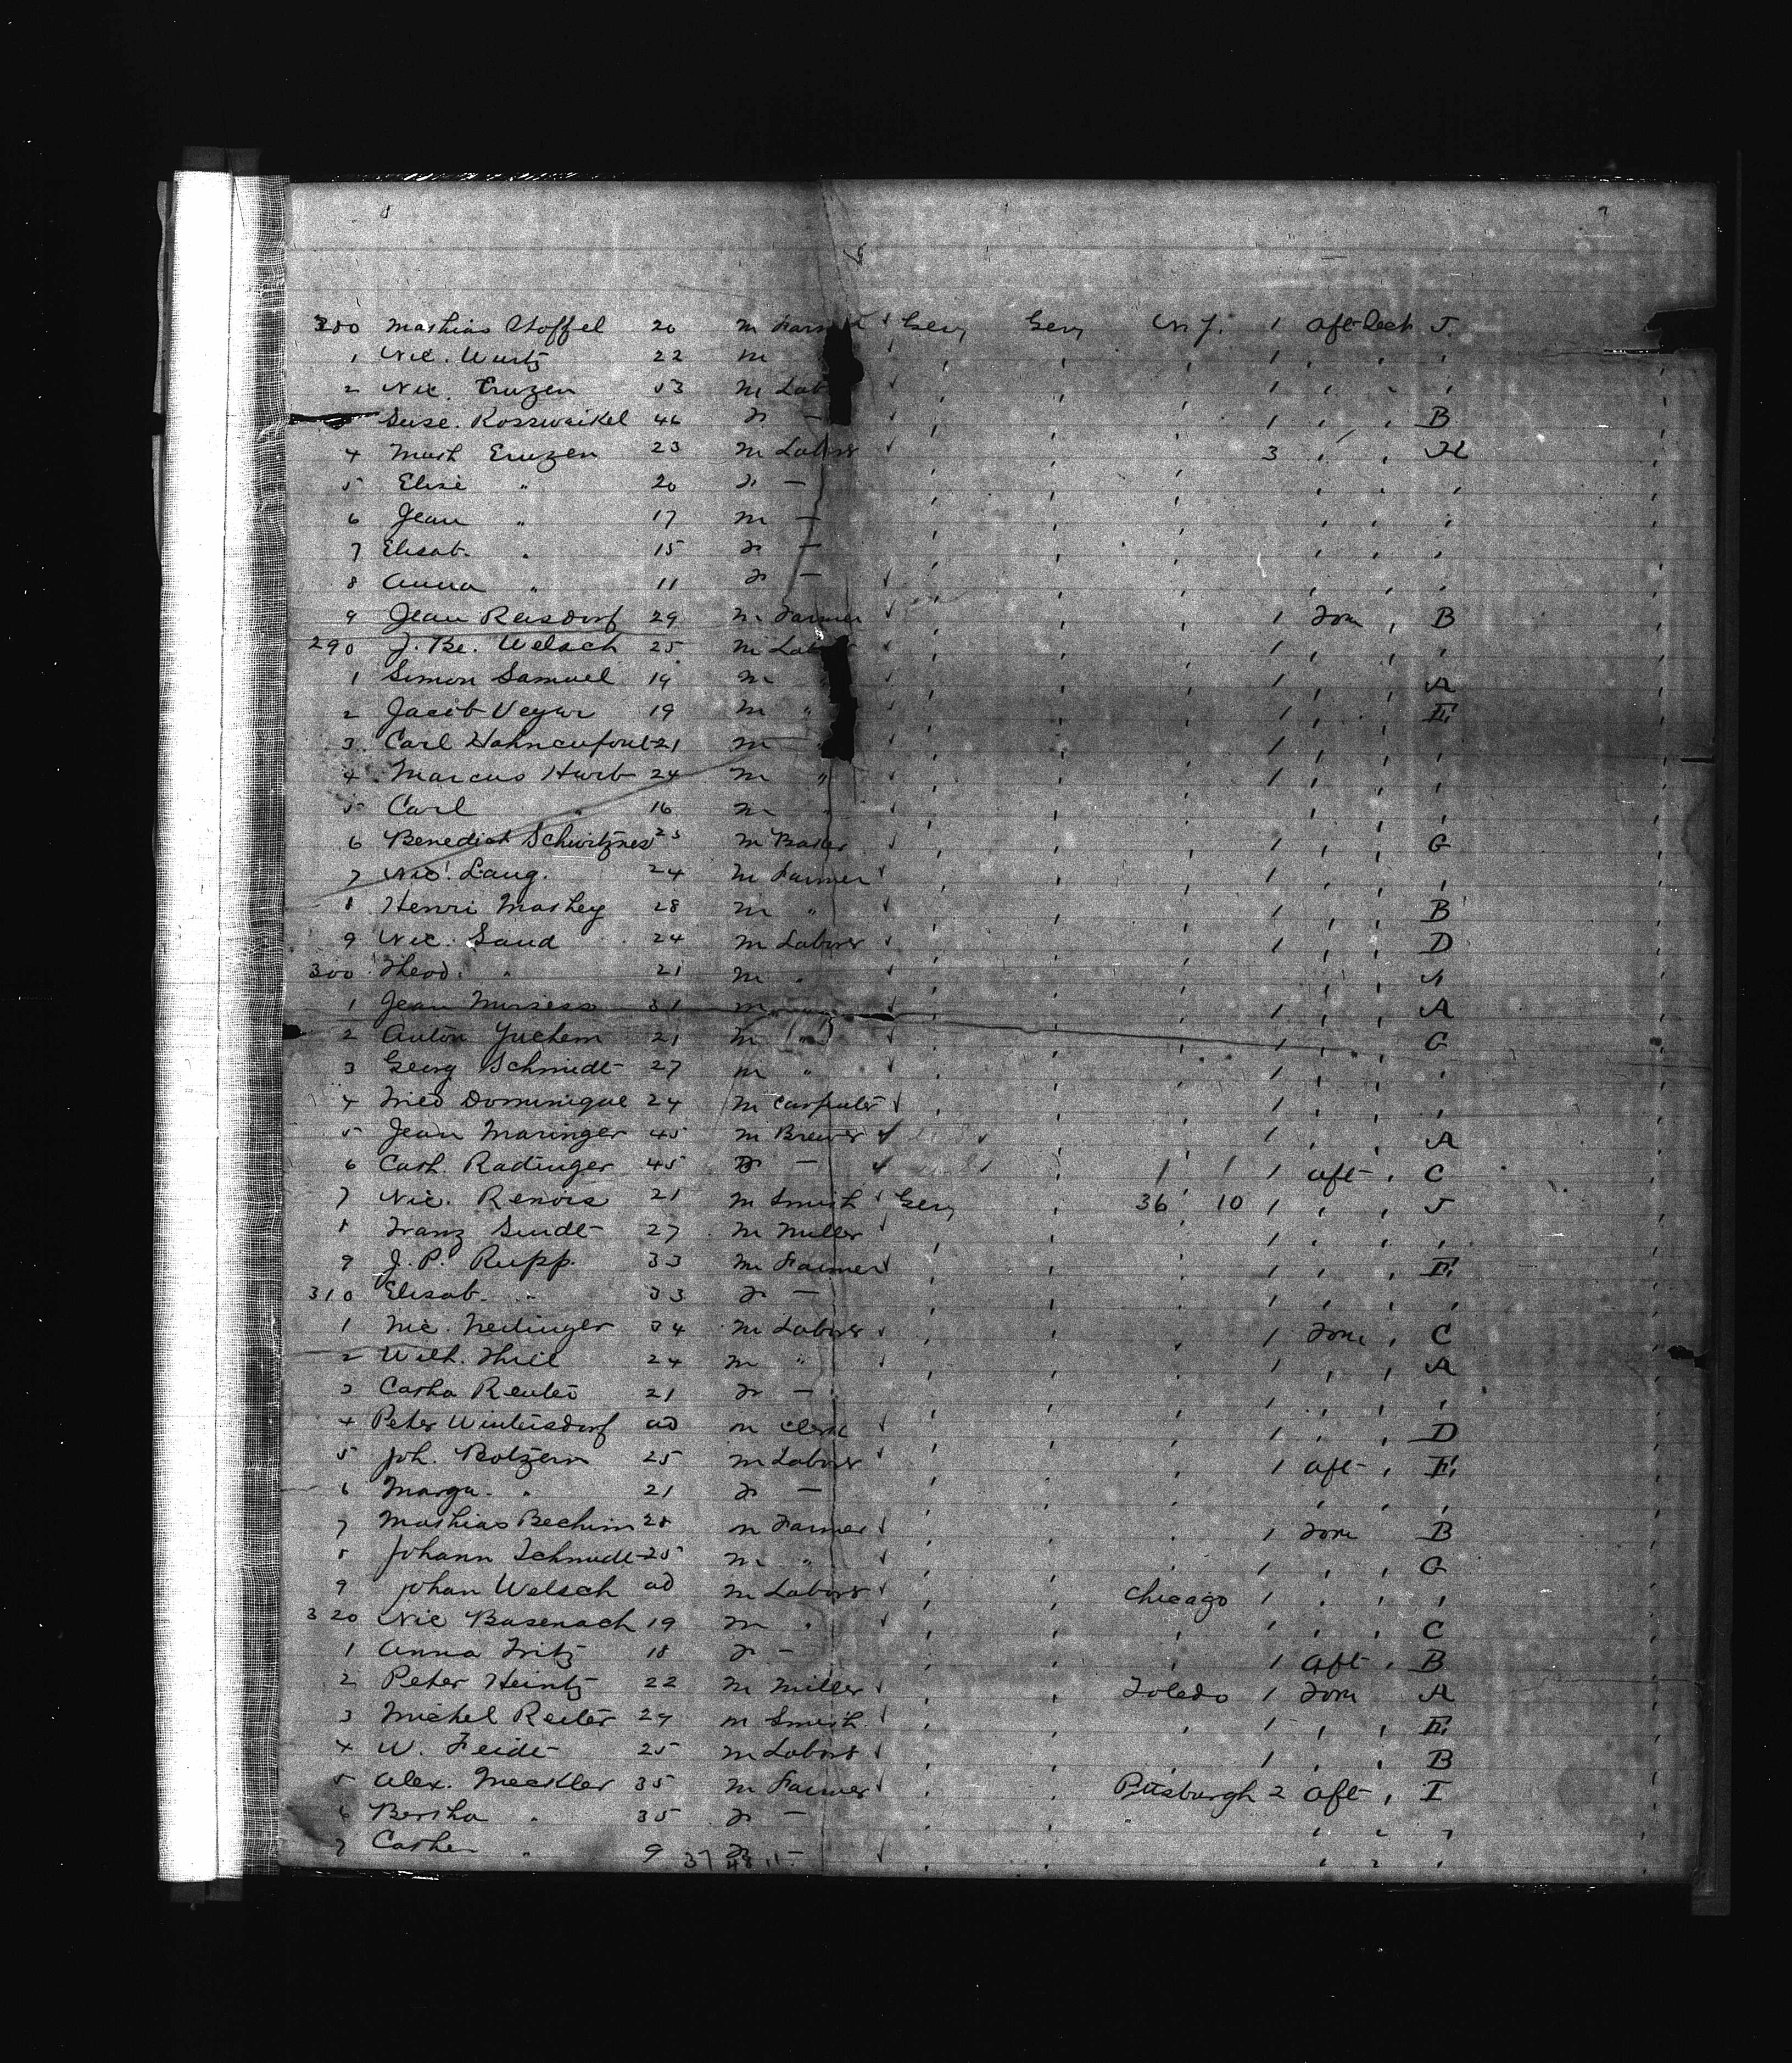 280 Mathias Stoffel 20 m Farm Gery Gery N.Y. 1 Aft Deck J
1 Nic. Wurtz 22 m 1
2 Nic. Eruzen 53 m Lab 1
Suse. Rosswinkel 46 f — 1 B
4 Math Eruzen 23 m Labor 3 H
5 Elise " 20 f —
6 Jean " 17 m —
7 Elisab. " 15 f —
8 Anna " 11 f —
9 Jean Reisdorf 29 m Farmer 1 For B
290 J. Be. Welsch 25 m Labor 1
1 Simon Samuel 19 m " 1 A
2 Jacob 19 m " 1 E
3 Carl 21 m " 1
4 Marcus Hurb 24 m " 1
5 Carl " 16 m "
6 Benedict 23 m Baker 1 G
7 Nic. Laug. 24 m Farmer 1
8 Henri Mathey 28 m " 1 B
9 Nic. Saud 24 m Labor 1 D
300 Theod. " 21 m "
1 Jean 31 m " 1 A
2 Anton Juchem 21 m " 1 G
3 Georg Schmidt 27 m " 1
4 Dominique 24 m Carpenter 1
5 Jean Maringer 45 m Brewer 1 A
6 Cath. Radinger 45 f — 1 1 1 aft C
7 Nic. Renois 21 m Smith Gery 36 10 1 J
8 Franz 27 m Miller 1
9 J. P. Rupp. 33 m Farmer 1 E
310 Elisab. " 33 f — 1
1 Nic. Neilinger 34 m Labor 1 For C
2 Wilh. Thiel 24 m " 1 A
3 Catha Reuter 21 f — 1
4 Peter Wintersdorf ad m Clerk 1 D
5 Joh. Bolzem 25 m Labor 1 aft E
6 Marga. " 21 f —
7 Mathias Bechim 28 m Farmer 1 For B
8 Johann Schmidt 25 m " 1 G
9 Johan Welsch ad m Labor Chicago 1
320 Nic Basenach 19 m " 1 C
1 Anna Fritz 18 f — 1 aft B
2 Peter Heintz 22 m Miller Toledo 1 For A
3 Michel Reiter 29 m Smith " 1 E
4 W. Feidt 25 m Labor 1 B
5 Alex. Meckler 35 m Farmer Pittsburgh 2 aft I
6 Bertha " 35 f — "
7 Cathe " 9 f —
37 48 11